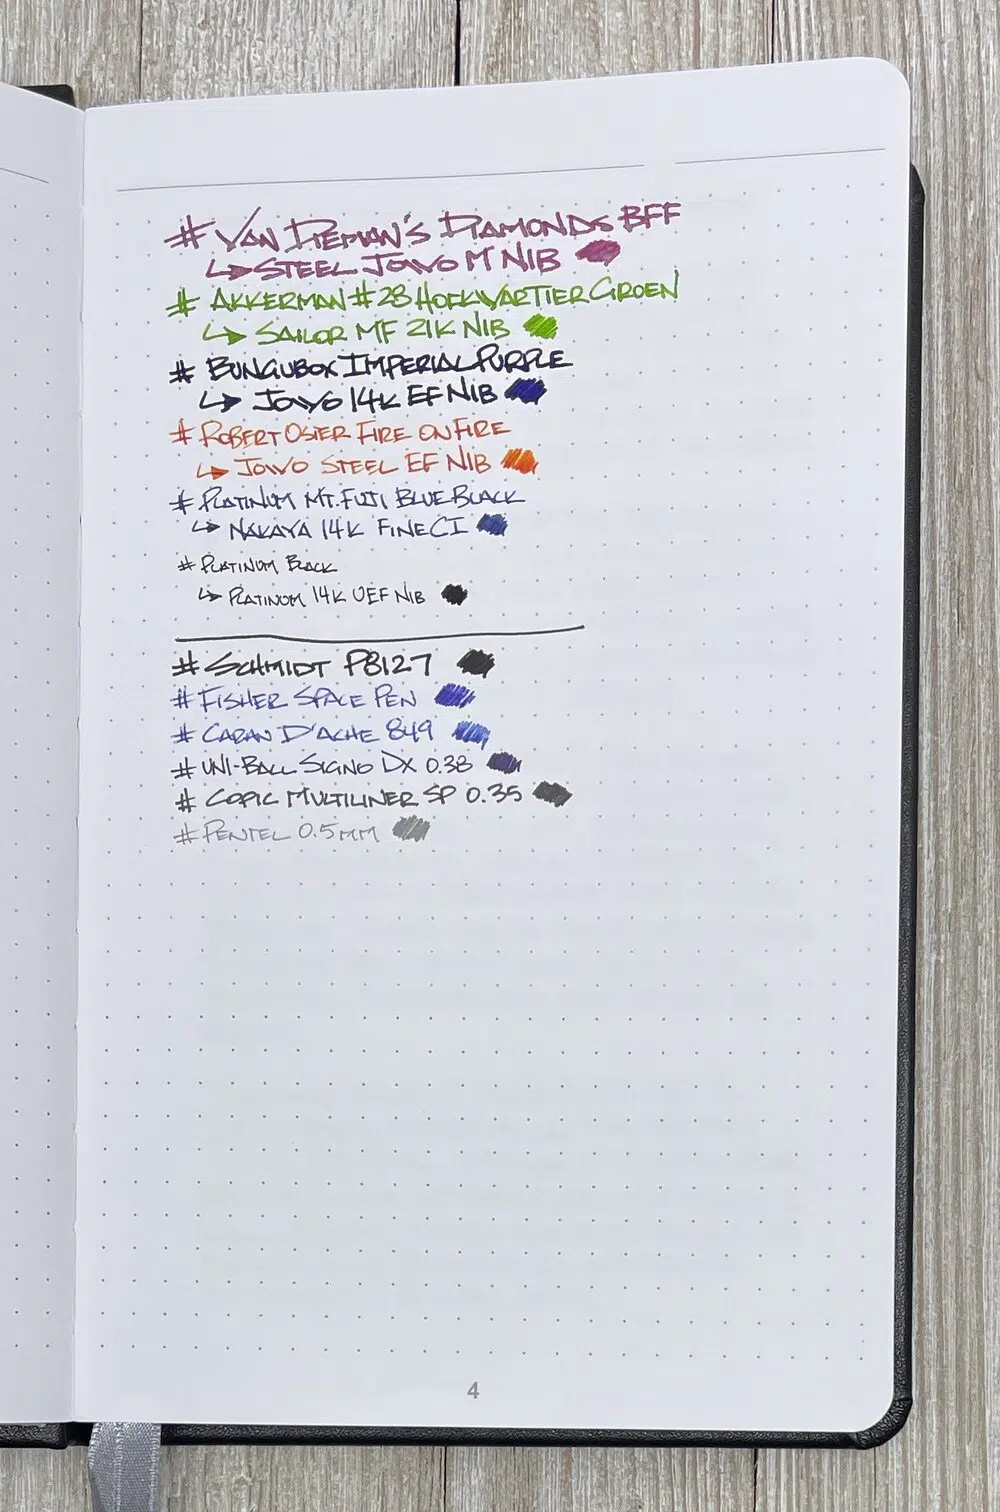 # VAN DIEMAN'S DIAMONDS BFF
↳ STEEL JOWO M NIB
# AKKERMAN #28 HOFKWARTIER GROEN
↳ SAILOR MF 21K NIB
# BUNGUBOX IMPERIAL PURPLE
↳ JOWO 14K EF NIB
# ROBERT OSTER FIRE ON FIRE
↳ JOWO STEEL EF NIB
# PLATINUM MT. FUJI BLUE BLACK
↳ NAKAYA 14K FINE CI
# PLATINUM BLACK
↳ PLATINUM 14K UEF NIB
# SCHMIDT P8127
# FISHER SPACE PEN
# CARAN D'ACHE 849
# UNI-BALL SIGNO DX 0.38
# COPIC MULTILINER SP 0.35
# PENTEL 0.5MM
4